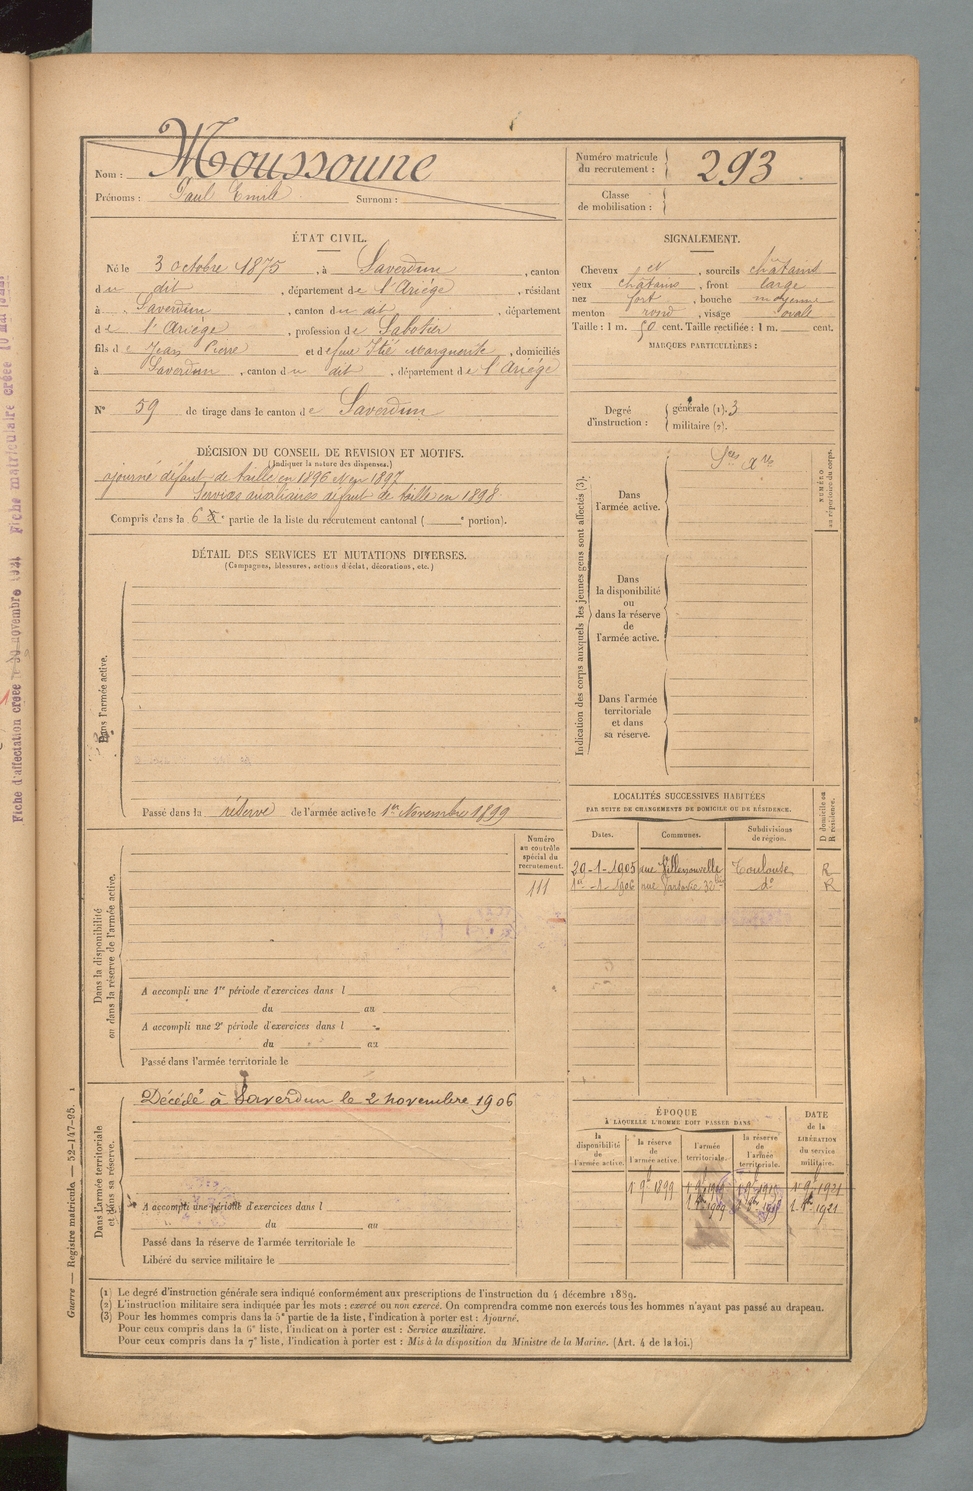 Nom : Moussoune
Prénoms : Paul Emile Surnom :
Numéro matricule du recrutement : 293
Classe de mobilisation :
ÉTAT CIVIL.
Né le 3 octobre 1875, à Saverdun, canton
du dit, département de l'Ariège, résidant
à Saverdun, canton du dit, département
de l'Ariège, profession de Sabotier
fils de Jean Pierre et de feue Itié Marguerite, domiciliés
à Saverdun, canton du dit, département de l'Ariège
N° 59 de tirage dans le canton de Saverdun
SIGNALEMENT.
Cheveux et, sourcils châtains
yeux châtains, front large
nez fort, bouche moyenne
menton rond, visage ovale
Taille : 1 m. 50 cent. Taille rectifiée : 1 m. cent.
MARQUES PARTICULIÈRES :
Degré d'instruction : générale (1). 3
militaire (2).
DÉCISION DU CONSEIL DE REVISION ET MOTIFS.
(Indiquer la nature des dispenses.)
ajourné défaut de taille en 1896 et en 1897
Services auxiliaires défaut de taille en 1898.
Compris dans la 6e partie de la liste du recrutement cantonal ( e portion).
DÉTAIL DES SERVICES ET MUTATIONS DIVERSES.
(Campagnes, blessures, actions d'éclat, décorations, etc.)
Dans l'armée active.
Passé dans la réserve de l'armée active le 1er Novembre 1899
Indication des corps auxquels les jeunes gens sont affectés (3).
Dans l'armée active.
NUMÉRO au répertoire du corps.
Dans la disponibilité ou dans la réserve de l'armée active.
Dans l'armée territoriale et dans sa réserve.
LOCALITÉS SUCCESSIVES HABITÉES
PAR SUITE DE CHANGEMENTS DE DOMICILE OU DE RÉSIDENCE.
D domicile ou R résidence.
Dates. Communes. Subdivisions de région.
29-1-1905 rue Villenouvelle Toulouse R
1er-1-1906 rue do R
Numéro au contrôle spécial du recrutement.
111
Dans la disponibilité ou dans la réserve de l'armée active.
A accompli une 1re période d'exercices dans l
du au
A accompli une 2e période d'exercices dans l
du au
Passé dans l'armée territoriale le
Dans l'armée territoriale et dans sa réserve.
Décédé à Saverdun le 2 novembre 1906
A accompli une période d'exercices dans l
du au
Passé dans la réserve de l'armée territoriale le
Libéré du service militaire le
ÉPOQUE
À LAQUELLE L'HOMME DOIT PASSER DANS
la disponibilité de l'armée active.
la réserve de l'armée active.
l'armée territoriale.
la réserve de l'armée territoriale.
DATE de la LIBÉRATION du service militaire.
1899
1909
1921
1921
(1) Le degré d'instruction générale sera indiqué conformément aux prescriptions de l'instruction du 4 décembre 1889.
(2) L'instruction militaire sera indiquée par les mots : exercé ou non exercé. On comprendra comme non exercés tous les hommes n'ayant pas passé au drapeau.
(3) Pour les hommes compris dans la 5e partie de la liste, l'indication à porter est : Ajourné.
Pour ceux compris dans la 6e liste, l'indication à porter est : Service auxiliaire.
Pour ceux compris dans la 7e liste, l'indication à porter est : Mis à la disposition du Ministre de la Marine. (Art. 4 de la loi.)
Guerre — Registre matricule. — 52-147-95. 1
Fiche d'affectation créée le novembre 1921 Fiche matriculaire créée